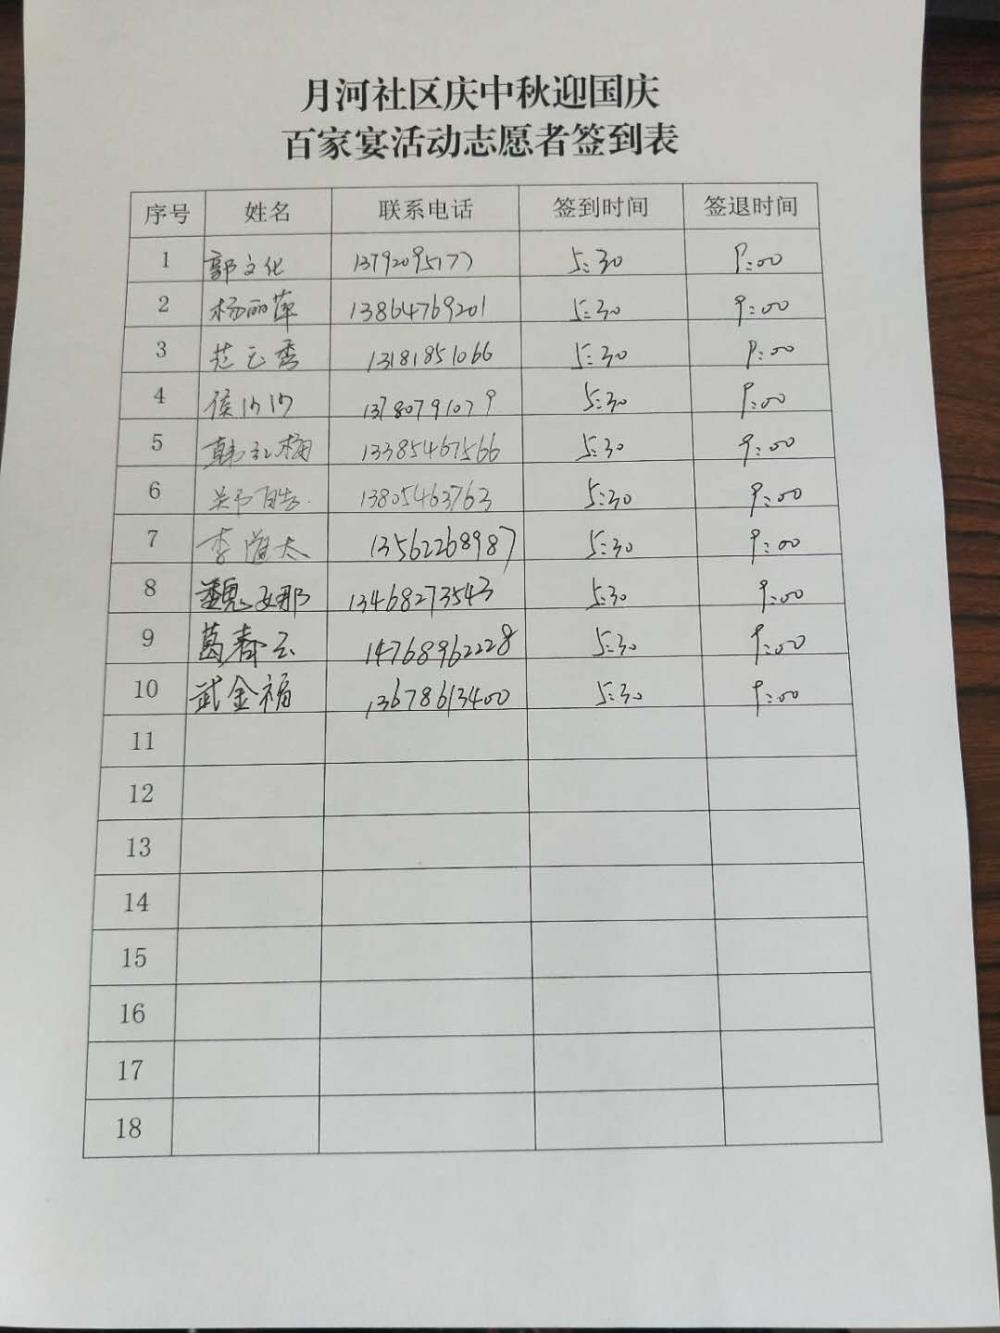 月河社区庆中秋迎国庆
百家宴活动志愿者签到表
序号 姓名 联系电话 签到时间 签退时间
1 郭文化 13792095177 5:30 9:00
2 杨丽萍 13864769201 5:30 9:00
3 范玉秀 13181851066 5:30 9:00
4 侯沙沙 13780791079 5:30 9:00
5 韩红梅 13385467566 5:30 9:00
6 13805463763 5:30 9:00
7 李道太 13562268987 5:30 9:00
8 魏亚娜 13468273543 5:30 9:00
9 葛春云 14768962228 5:30 9:00
10 武金福 13678613400 5:30 9:00
11
12
13
14
15
16
17
18